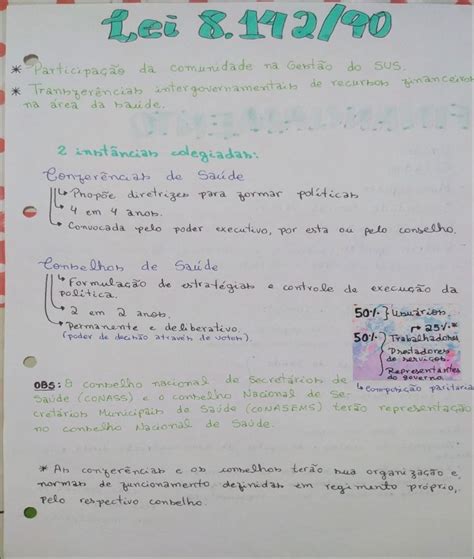 Lei 8.142/90
* Participação da comunidade na Gestão do SUS.
* Transferências intergovernamentais de recursos financeiros
na área da saúde.
2 instâncias colegiadas:
Conferências de Saúde
↳ Propõe diretrizes para formar políticas
↳ 4 em 4 anos.
↳ Convocada pelo poder executivo, por esta ou pelo conselho.
Conselhos de Saúde
↳ Formulação de estratégias e controle de execução da
política.
↳ 2 em 2 anos.
↳ Permanente e deliberativo.
(poder de decisão através de votos).
50% } Usuários.
↱ 25%*
50% } Trabalhadores
Prestadores
de serviços.
Representantes
do governo.
↳ Composição paritária
OBS: O conselho nacional de Secretários de
Saúde (CONASS) e o conselho Nacional de Se-
cretários Municipais de Saúde (CONASEMS) terão representação
no conselho Nacional de Saúde.
* As conferências e os conselhos terão sua organização e
normas de funcionamento definidas em regimento próprio,
Pelo respectivo conselho.